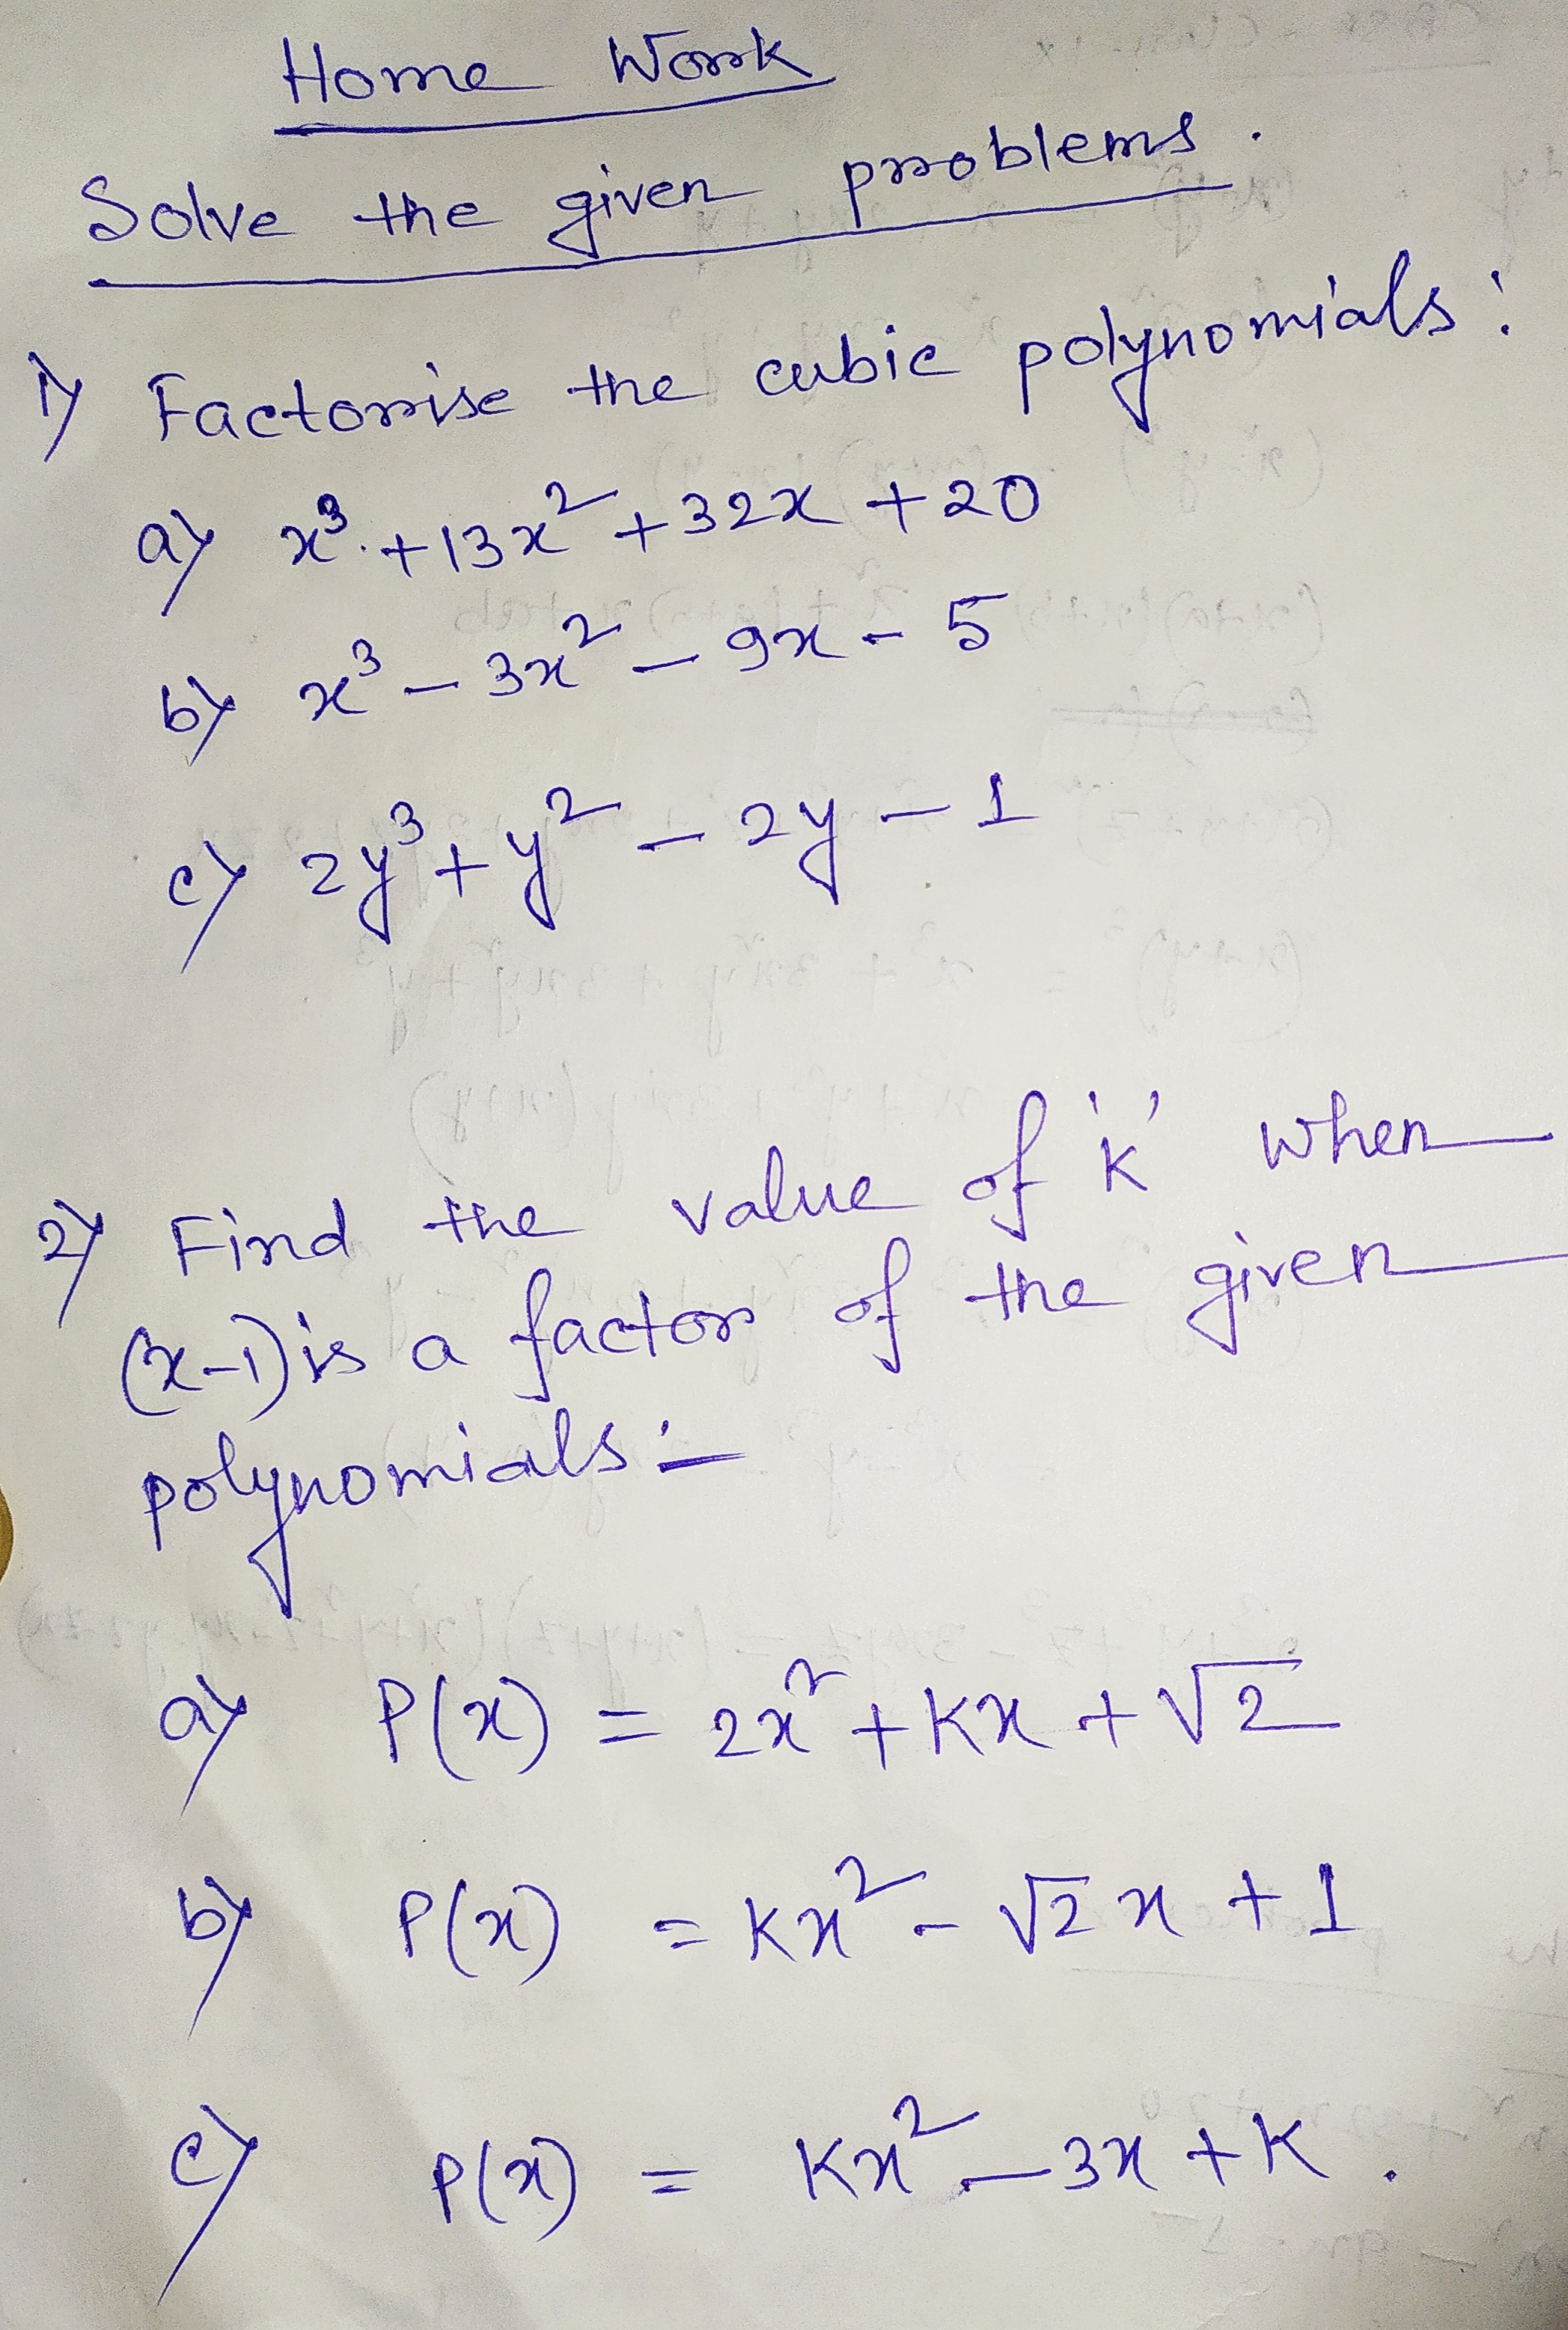 Home Work
Solve the given problems.
1) Factorise the cubic polynomials:
a) x³ + 13x² + 32x + 20
b) x³ - 3x² - 9x - 5
c) 2y³ + y² - 2y - 1
2) Find the value of 'K' when
(x-1) is a factor of the given
polynomials:-
a) P(x) = 2x² + Kx + √2
b) P(x) = Kx² - √2 x + 1
c) P(x) = Kx² - 3x + K.